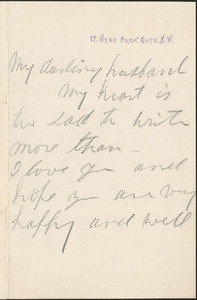 17, HYDE PARK GATE. S.W.
My darling husband
My heart is
too sad to write
more than -
I love you and
hope you are very
happy and well